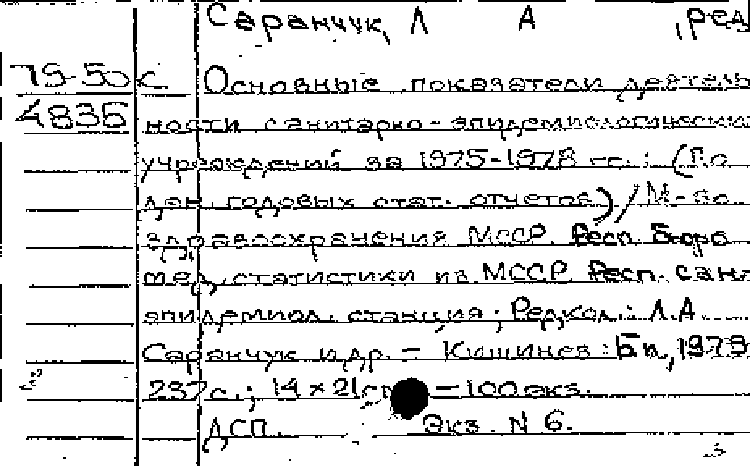 Саранчук, Л А , ред
79-50с Основные показатели деятель
4835 ности санитарно-эпидемиологических
учреждений за 1975-1978 гг.: (По
дан. годовых стат. отчетов) / М-во
здравоохранения МССР. Респ. бюро
мед. статистики МССР. Респ. сан.
эпидемиол. станция; Редкол.: Л.А.
Саранчук и др. - Кишинев: Б.и., 1979
237с.; 14 × 21см - 100 экз.
ДСП. Экз. N 6.